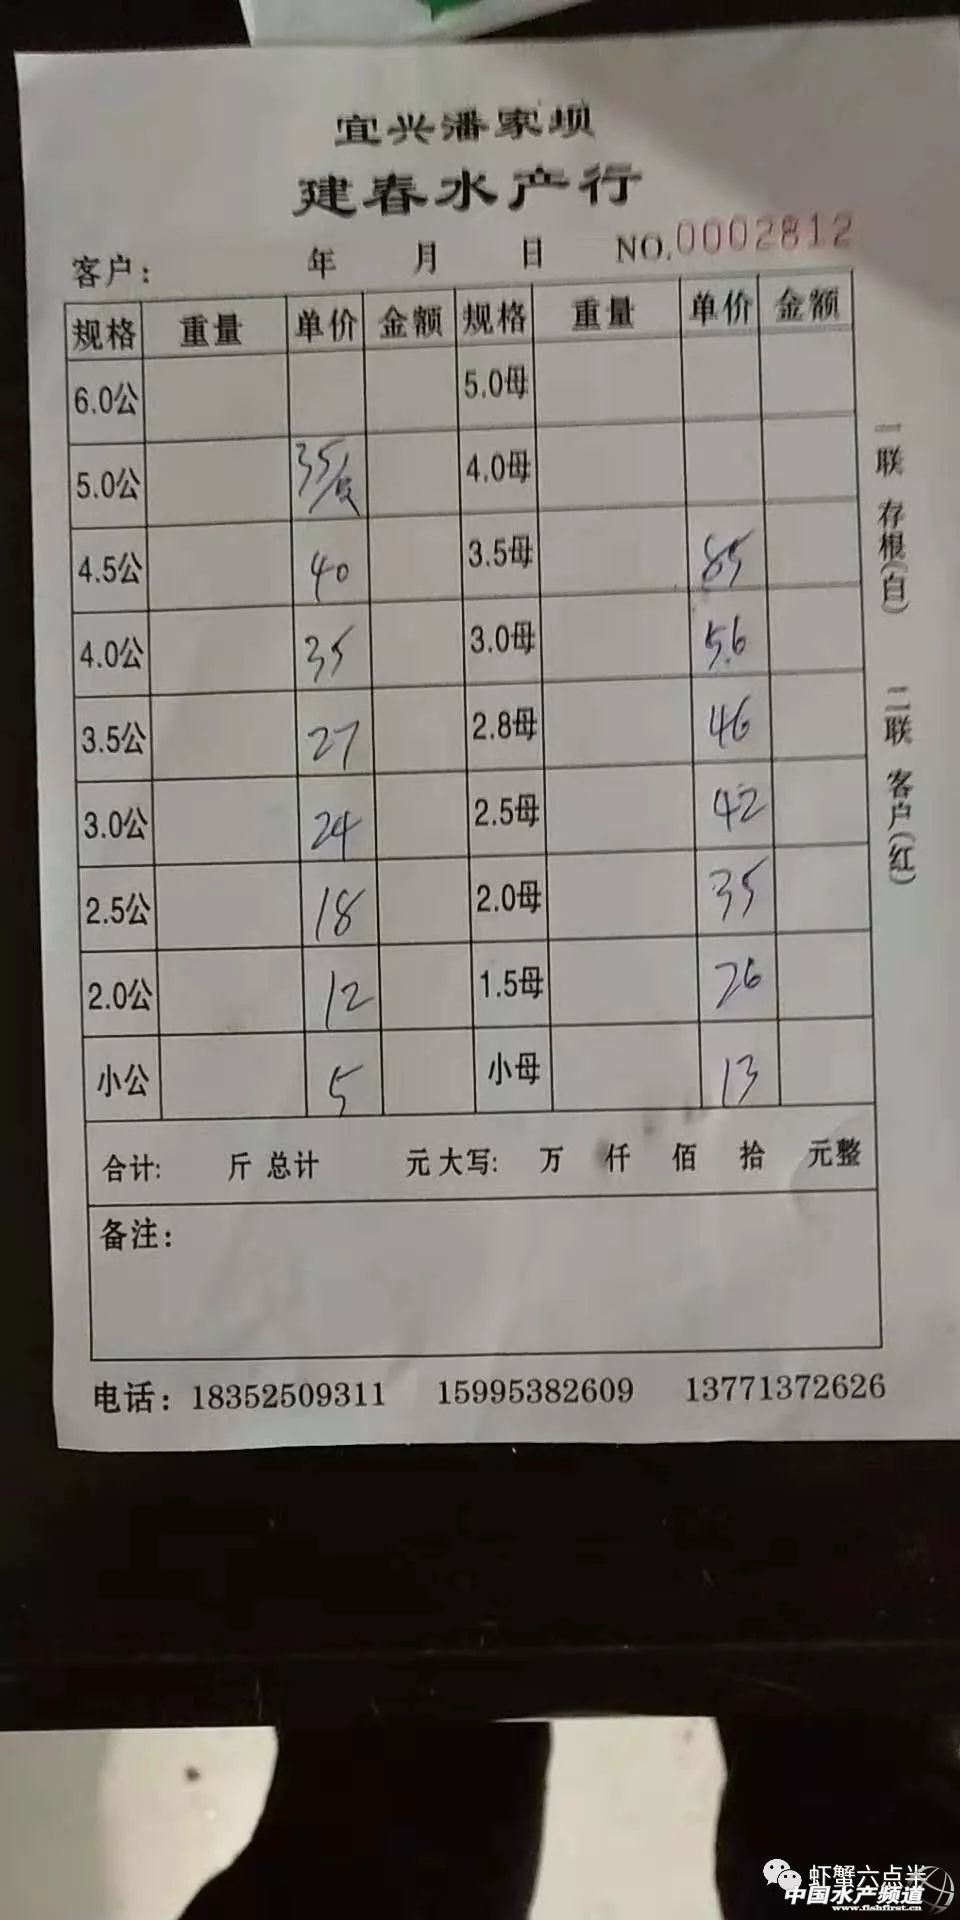 宜兴潘家坝
建春水产行
客户： 年 月 日 NO.0002812
规格 重量 单价 金额 规格 重量 单价 金额
6.0公 5.0母
5.0公 35/只 4.0母
4.5公 40 3.5母 85
4.0公 35 3.0母 56
3.5公 27 2.8母 46
3.0公 24 2.5母 42
2.5公 18 2.0母 35
2.0公 12 1.5母 26
小公 5 小母 13
合计: 斤 总计 元 大写: 万 仟 佰 拾 元整
备注：
电话：18352509311 15995382609 13771372626
一联 存根(白) 二联 客户(红)
虾蟹六点半
中国水产频道
www.fishfirst.cn